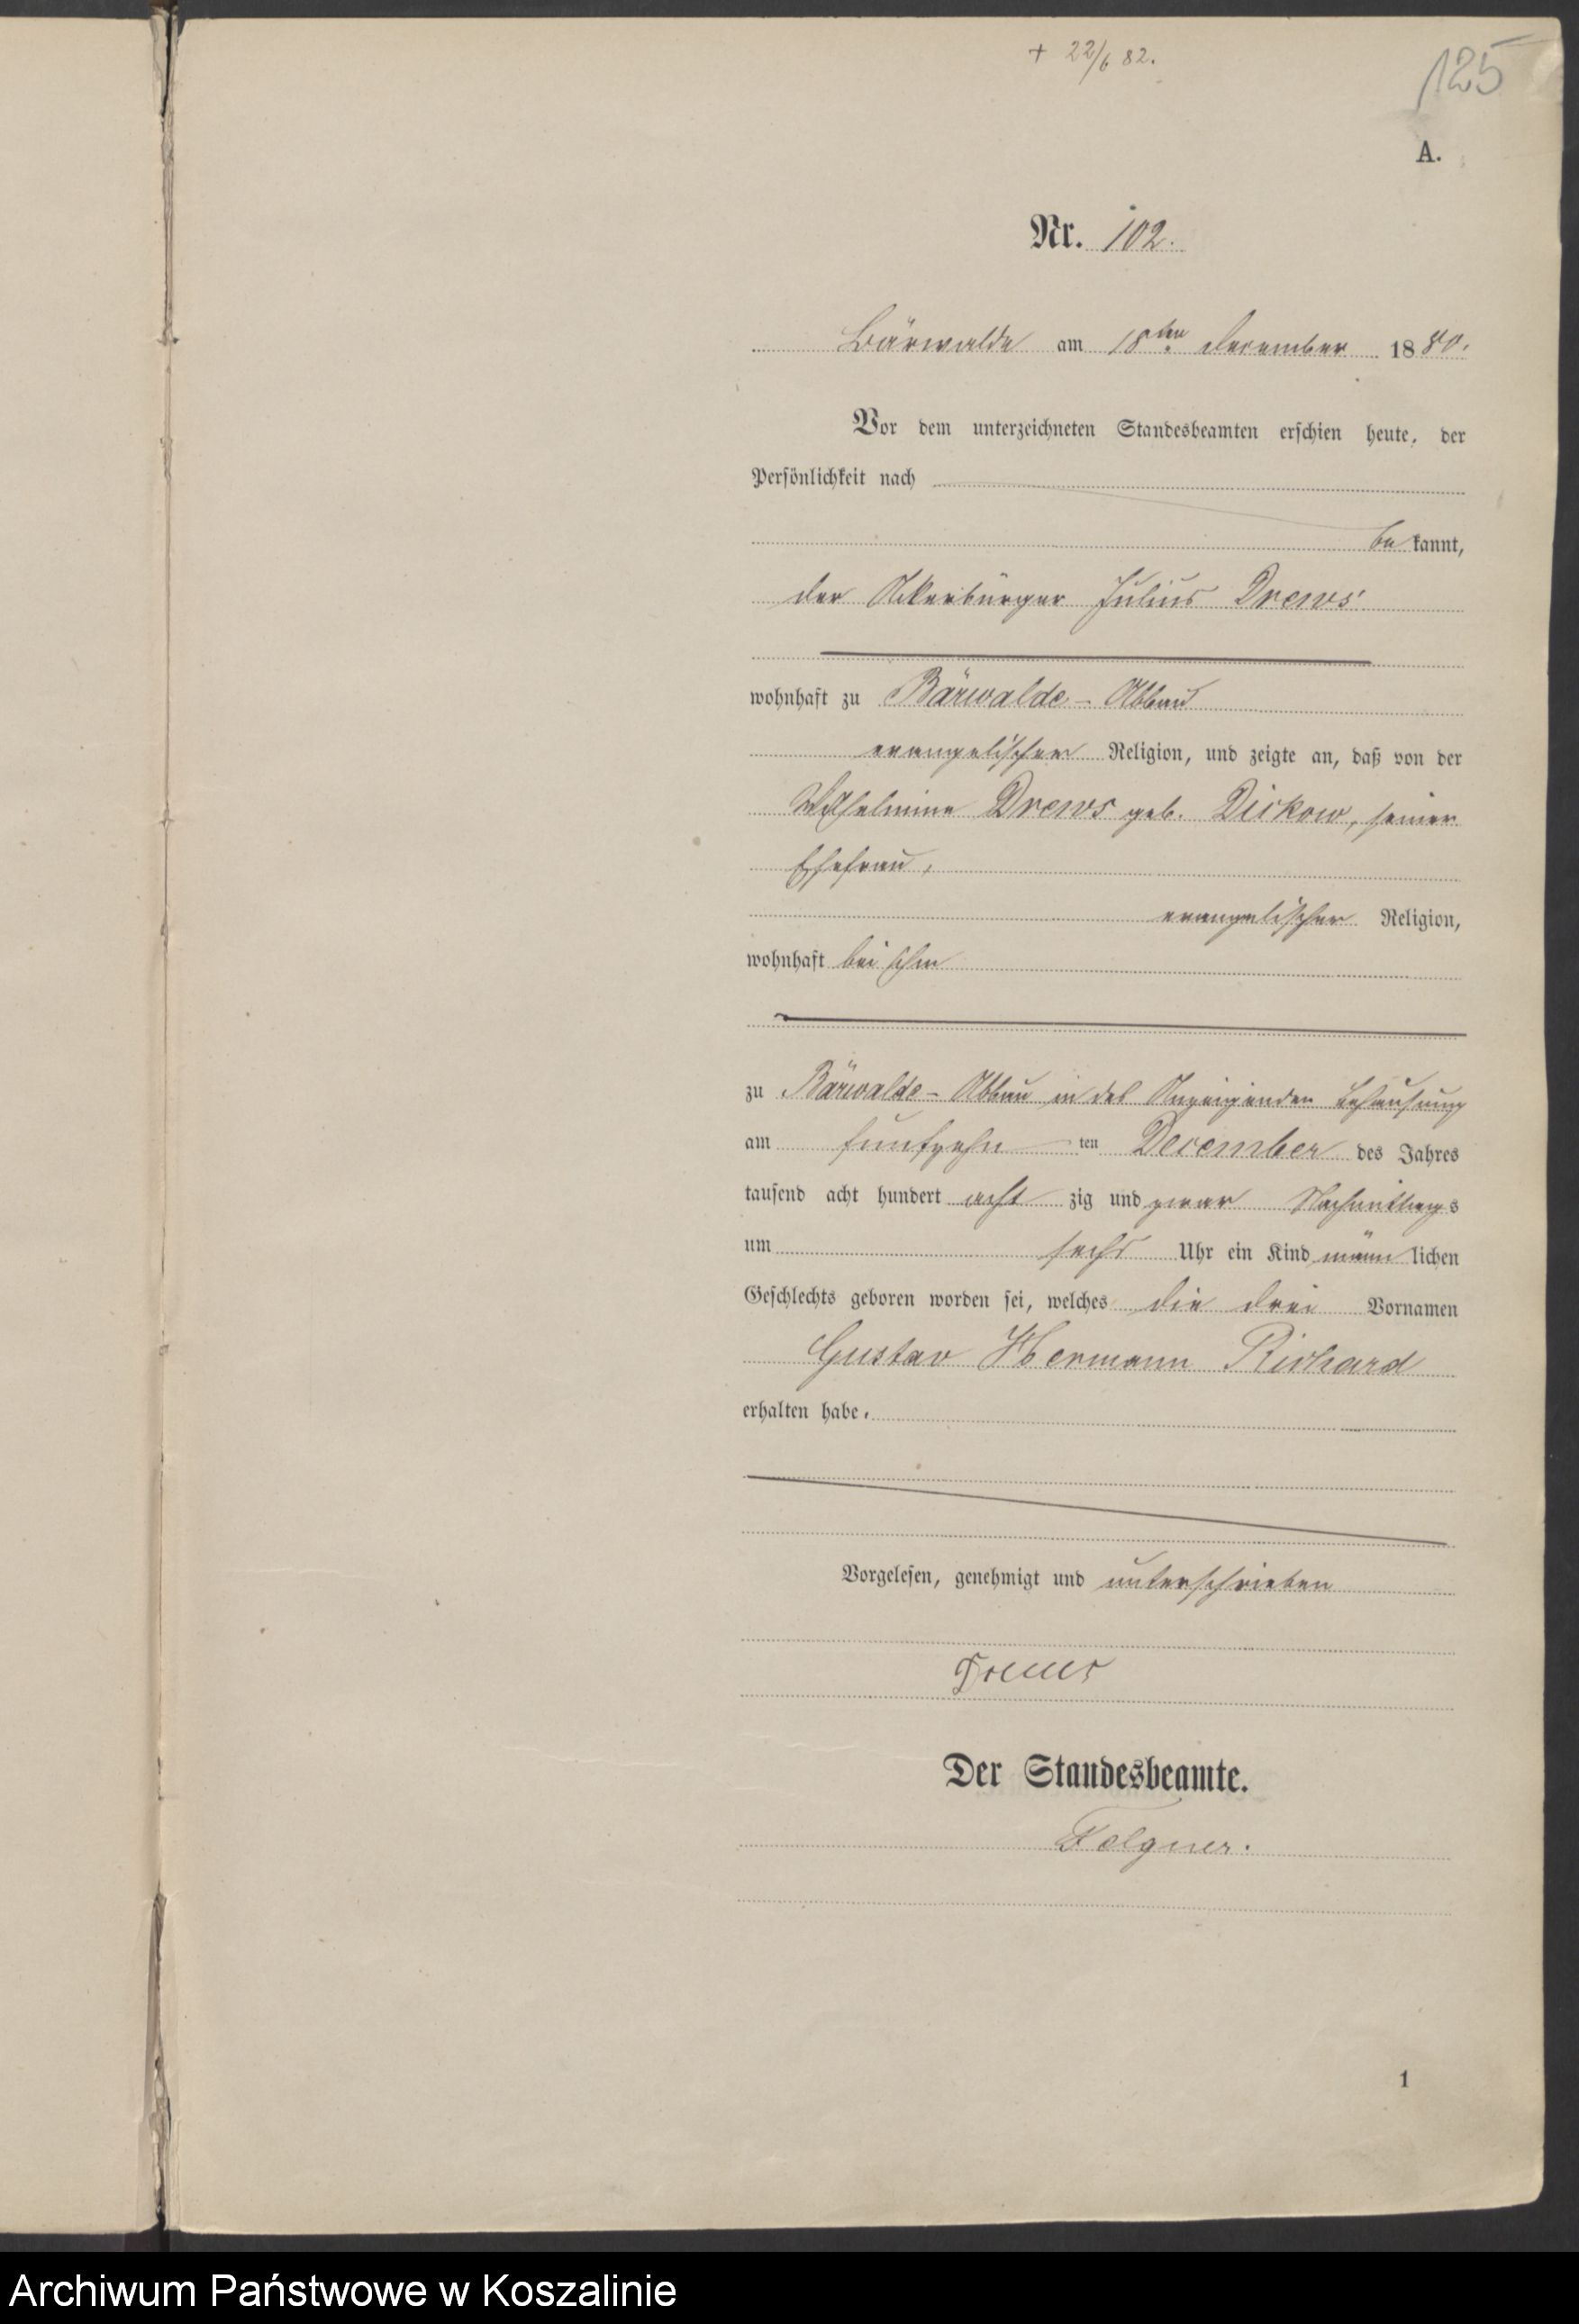 + 22/6 82.
125
A.
Nr. 102.
Bärwalde am 18ten December 1880.
Vor dem unterzeichneten Standesbeamten erschien heute, der
Persönlichkeit nach
be kannt,
der Ackerbürger Julius Drews
wohnhaft zu Bärwalde - Abbau
evangelischer Religion, und zeigte an, daß von der
Wilhelmine Drews geb. Dickow, seiner
Ehefrau,
evangelischer Religion,
wohnhaft bei ihm
zu Bärwalde - Abbau in des Anzeigenden Behausung
am fünfzehn ten December des Jahres
tausend acht hundert acht zig und zwar Nachmittags
um sechs Uhr ein Kind männ lichen
Geschlechts geboren worden sei, welches die drei Vornamen
Gustav Hermann Richard
erhalten habe.
Vorgelesen, genehmigt und unterschrieben
Drews
Der Standesbeamte.
Folgner.
1
Archiwum Państwowe w Koszalinie